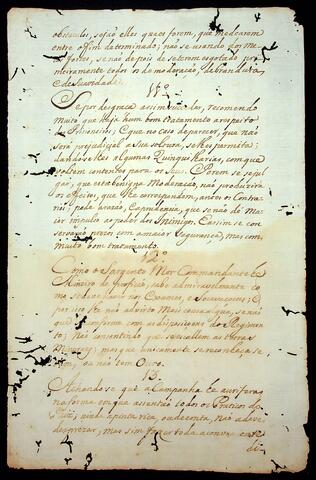 obstaculos, sejão elles quaes forem, que mediarem
entre o fim determinado; não se uzando dos me-
fortes, se não depois de se terem esgotado pri-
meiramente todos os de moderação, de brandura,
e de suavidade.
11º
Se por desgraça assim succeder, recomendo
muito que haja hum bom tratamento a respeito
de Prizioneiros; e que no cazo de parecer, que não
será prejudicial a sua soltura, se lhes permita;
dandoselhes algumas Quinquilharias, com que
voltem contentes para os seus. Porem se se jul-
gar, que esta benigna Moderação, não produzirá
os effeitos, que lhe correspondem, antes os Contra-
rios; pede a razão, Capitulario, que se não de ma-
ior incúlo ao poder dos Inimigos. E assim se con-
servarão prezos com a maior segurança, mas com
muito bom tratamento.
12º
Como o Sargento Mor Commandante he
Mineiro de profição, sabe admiravelmente como
se deve haver nos Exames, e Socavaçoens; E
por isso lhe não advirto mais couza, que, se não
que se conforme com as dispoziçoens do Regimen-
to; Não consentindo que se trabalhem as terras
Mineraes; mas que unicamente se reconheça se
tem, ou não tem Ouro.
13º
Achando se que a Campanha he aurifera
na forma em que assentão todos os Praticos do
Paiz; ainda a pinta rica, ou de conta, não a deve
desprezar; mas sim fazer toda a conveniente
di-